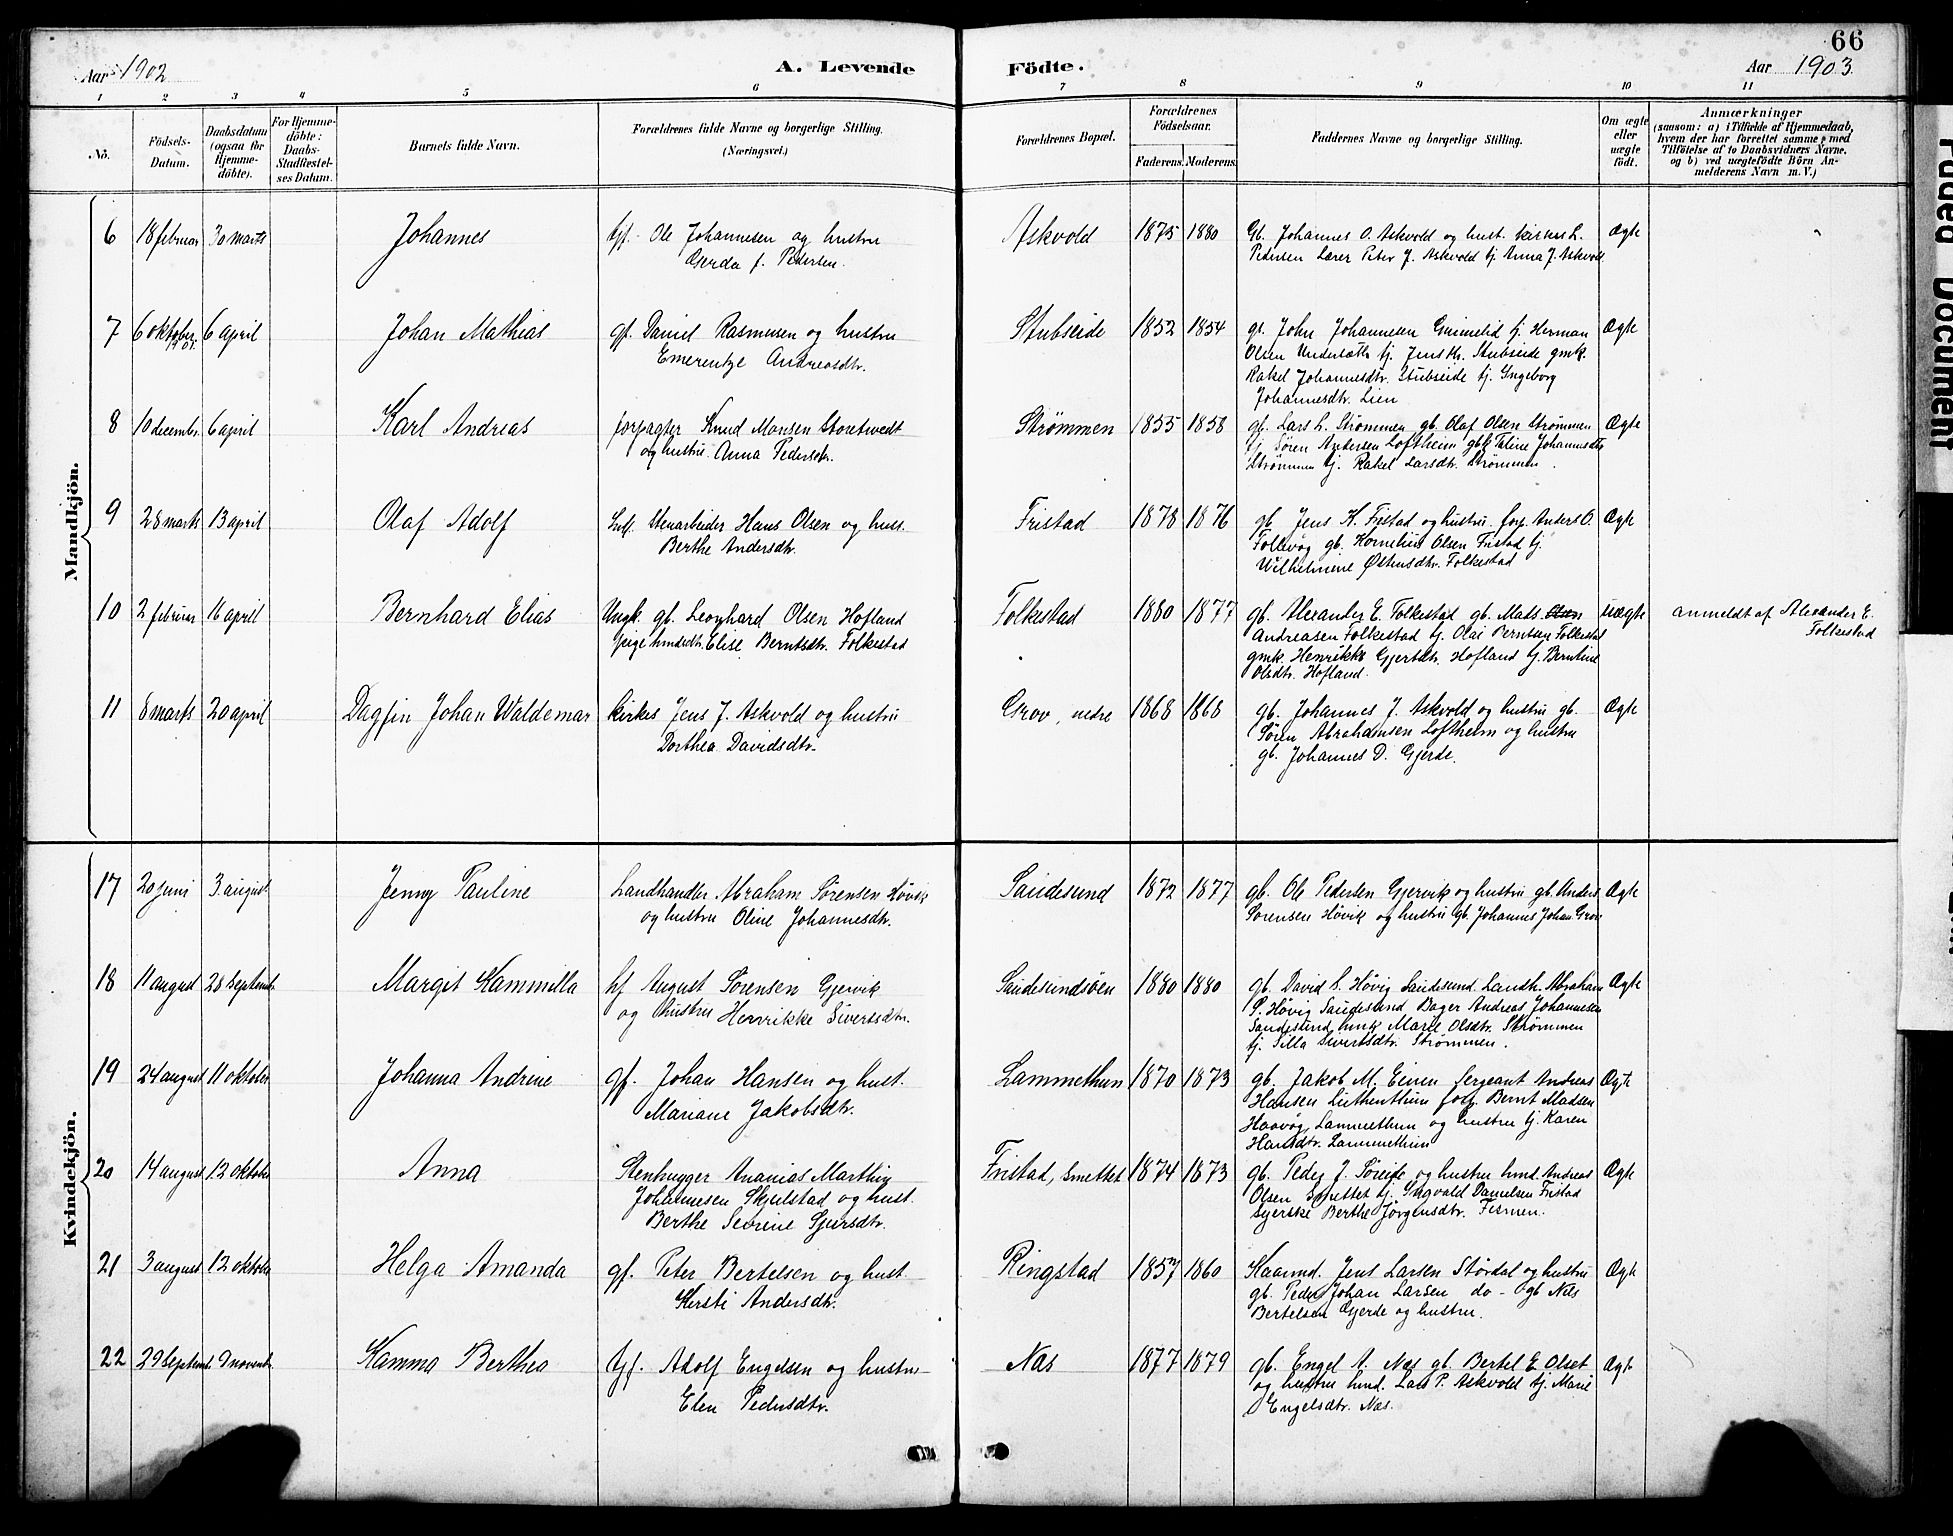 66
Aar 1902
A. Levende
Födte.
Aar 1903.
1 2 3 4 5 6 7 8 9 10 11
No.
Födsels-Datum.
Daabsdatum (ogsaa for Hjemme-döbte).
For Hjemme-döbte: Daabs-Stadfæstel-ses Datum.
Barnets fulde Navn.
Forældrenes fulde Navne og borgerlige Stilling.
(Næringsvei.)
Forældrenes Bopæl.
Forældrenes Födselsaar.
Faderens. Moderens.
Faddernes Navne og borgerlige Stilling.
Om ægte eller uægte födt.
Anmærkninger
(saasom: a) i Tilfælde af Hjemmedaab,
hvem der har forrettet samme, med
Tilföielse af to Daabsvidners Navne,
og b) ved uægtefödte Börn An-
melderens Navn m. V.)
Mandkjön.
6 18 februar 30 marts Johannes
Ole Johannesen og hustru
Gerda f. Pedersen.
Askvold 1875 1880
Gb. Johannes O. Askvold og hust. kirkes. L.
Pedersen Lærer Peter J. Askvold tj. Anna J. Askvold
Ægte
7 6 oktober 1901. 6 april Johan Mathias
gf. Daniel Rasmusen og hustru
Emerentze Andreasdtr.
Stubseide 1852 1854
John Johannesen Guimelid tj. Herman
Olsen Undersæth tj. Jens Stubseide gmk.
Rakel Johannesdtr. Stubseide tj. Ingeborg
Johannesdtr. Lien
Ægte
8 10 decembr. 6 april Karl Andreas
forpagter Knud Monsen Storetvedt
og hustru Anna Pedersdtr.
Strømmen 1855 1858
gf. Lars L. Strømmen gb. Olaf Olsen Strømmen
tj. Søren Andersen Loftheim Taline Johannesdtr
Strømmen tj. Rakel Larsdtr. Strømmen.
Ægte
9 28 marts 13 april Olaf Adolf
Stenarbeider Hans Olsen og hus.
Berthe Andersdtr.
Fristad 1878 1876
gb. Jens H. Fristad og hustru. forp. Anders O.
Follevög gb. Kornelius Olsen Fristad tj.
Wilhelmine Folkestad
Ægte
10 2 februar 16 april Bernhard Elias
Ungk. gb. Leonhard Olsen Hofland
Elise Berntsdtr. Folkestad
Folkestad 1880 1877
gb. Alexander E. Folkestad gb. Mads
Andreasen Folkestad tj. Olai Berntsen Folkestad
gmk. Henrikke Gjertsdtr. Hofland tj. Berntine
Olsdtr. Hofland.
uægte
Anmeldt af Alexander E.
Folkestad
11 8 marts 20 april Dagfin Johan Waldemar
kirkes Jens J. Askvold og hustru
Dorthea Davidsdtr.
Grov, nedre 1868 1868
gb. Johannes J. Askvold og hustru gb.
Søren Abrahamsen Loftheim og hustru
gb. Johannes D. Gjerde.
Ægte
Kvindekjön.
17 20 juni 3 august Jenny Pauline
Landhandler Abraham Sørensen Høvik
og hustru Oline Johannesdtr.
Saudesund 1872 1877
gb. Ole Pedersen Gjervik og hustru gb. Anders
Sørensen Høvik og hustru gb. Johannes Johan Grov
Ægte
18 11 august 28 Septembr Margit Kammilla
hf August Sørensen Gjervik
og hustru Henrikke Sivertsdtr.
Saudesundsøen 1880 1880
gb. David S. Høvig Saudesund Landh. Abraham
S. Høvig Saudesund Bager Andreas Johannesen
Saudesund Marie Olsdtr. Strømmen
tj. Silla Sivertsdtr. Strømmen.
Ægte
19 24 august 11 oktober Johanna Andrine
gf. Johan Hansen og hust.
Mariane Jakobsdtr.
Lammethun 1870 1873
gb. Jakob M. Einen Sergeant Andreas
Hansen Luthenthun forp. Bernt Madsen
Haavåg, Lammethun og hustru tj. Karen
Hansdtr. Lammethun
Ægte
20 14 august 12 oktober Anna
Stenhugger Ananias Marthin
Johannesen Skjulstad og hust.
Berthe Severine Sjursdtr.
Fristad, Smettet 1874 1873
gb. Peder J. Søreide og hustru hmd. Andreas
Olsen Smettet tj. Ingvald Danielsen Fristad
syerske Berthe Jörgensdtr. Fermen.
Ægte
21 3 august 12 oktober Helga Amanda
gf. Peter Bertelsen og hust
Kersti Andersdtr.
Ringstad 1857 1860
Kaarmd. Jens Larsen Størdal og hustru
gb. Peder Johan Larsen do - Ogb Nils
Bertelsen Gjerde og hustru.
Ægte
22 29 septemb. 9 novembr Hamma Berthea
Adolf Engelsen og hustru
Elen Pedersdtr.
Nas 1877 1879
gb. Engel A. Nas gb. Bertel E. Olset
og hustru hmd. Lars P. Askvold tj. Marie
Engelsdtr. Nas.
Ægt
Faded Document